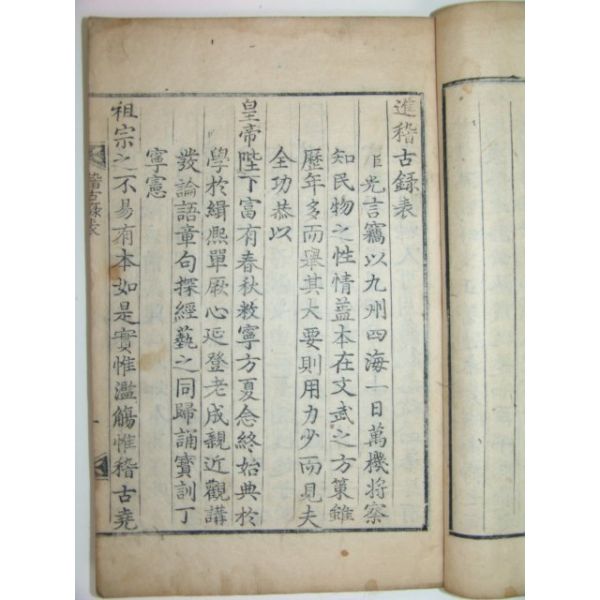 進稽古錄表
臣光言竊以九州四海一日萬機將察
知民物之性情益本在文武之方策雖
歷年多而舉其大要則用力少而見夫
全功恭以
皇帝陛下富有春秋敉寧方夏念終始典於
學於緝熙單厥心延登老成親近觀講
發論語章句探經藝之同歸誦寶訓丁
寧憲
祖宗之不易有本如是實惟濫觴惟稽古堯
稽古錄表